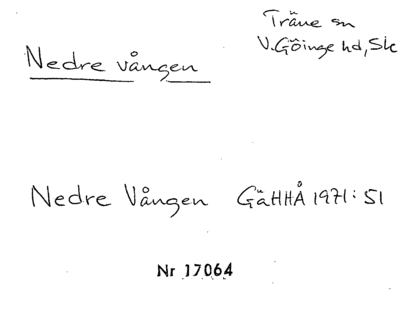 Nedre vången
Träne sn
V. Göinge hd, Sk
Nedre Vången GäHHÅ 1971: 51
Nr 17064